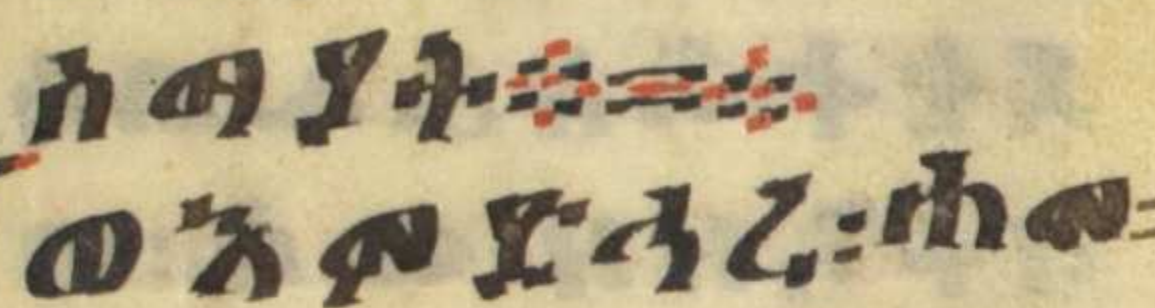 ሰማያት፨ = ፨
ወእምድኅረ፡